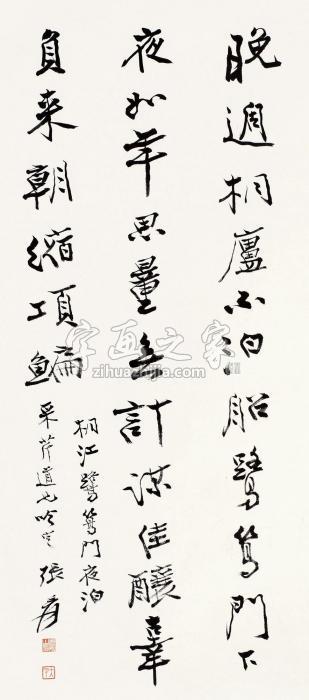 晚過桐廬不泊船鷺鷥門下
夜如年思量無計謀佳釀辜
負来朝縮項鯿
桐江鷺鷥門夜泊
采芹道兄吟定 張爰
字画之家
www.zihuazhijia.com